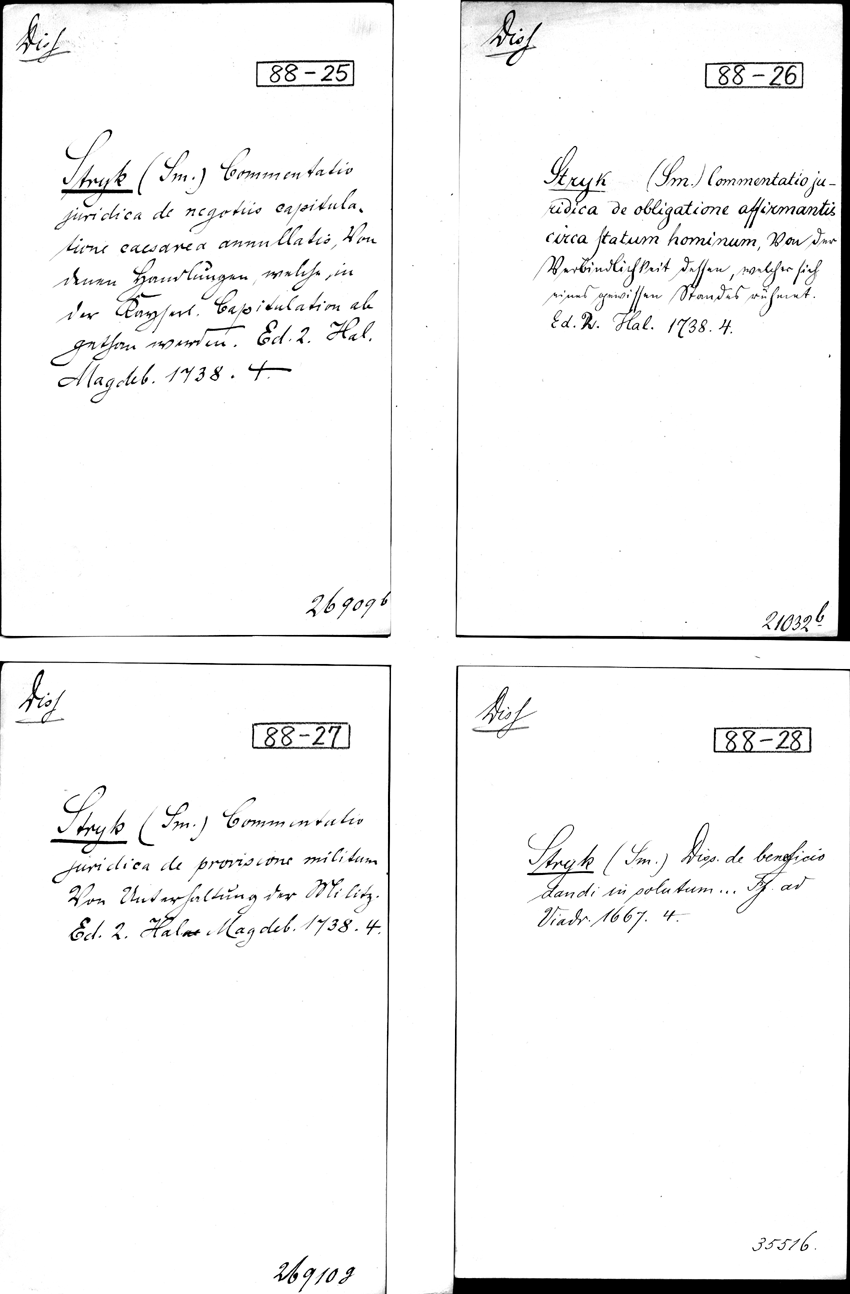 Diss
88-25
Stryk (Sm.) Commentatio
juridica de negotiis capitula-
tione caesarea annullatis, Von
denen Handlungen, welche, in
der Kayserl. Capitulation ab
gethan werden. Ed. 2. Hal.
Magdeb. 1738. 4.
26909b
Diss
88-26
Stryk (Sm.) Commentatio ju-
ridica de obligatione affirmantis
circa statum hominum, Von der
Verbindlichkeit dessen, welcher sich
eines gewissen Standes rühmet.
Ed. 2. Hal. 1738. 4.
21032b
Diss
88-27
Stryk (Sm.) Commentatio
juridica de provisione militum
Von Unterhaltung der Militz.
Ed. 2. Hal Magdeb. 1738. 4.
Diss
88-28
Stryk (Sm.) Disp. de beneficio
dandi in solutum... Ff. ad
Viadr. 1667. 4.
35516.